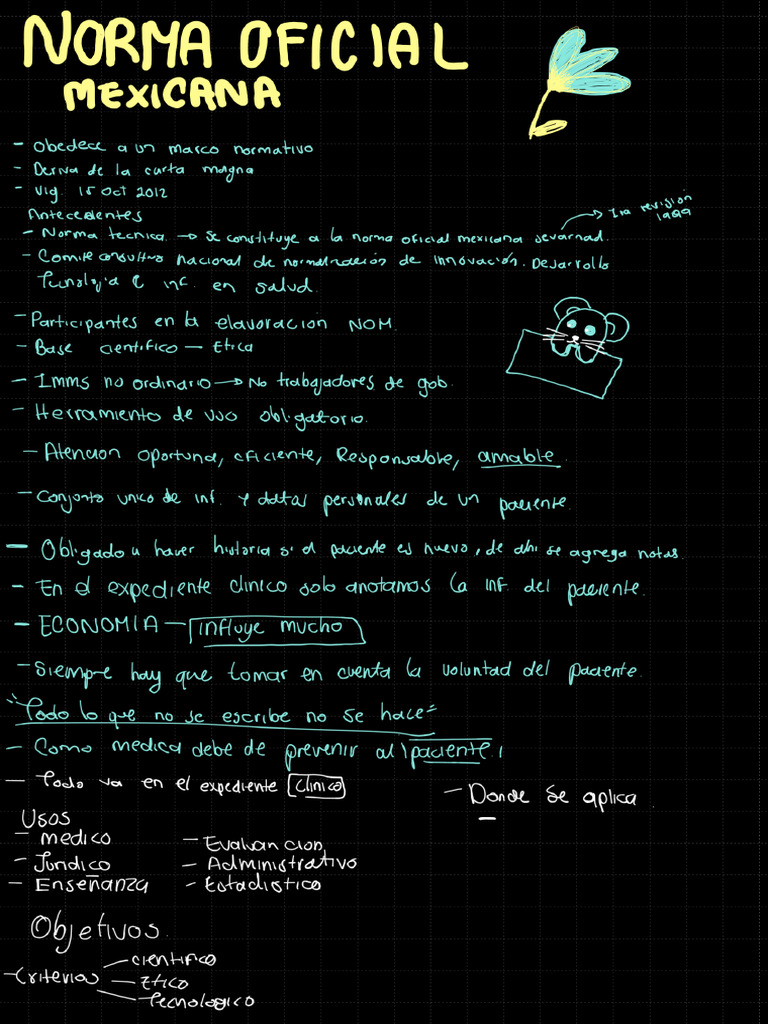 NORMA OFICIAL
MEXICANA
- Obedece a un marco normativo
- Deriva de la carta magna
- Vig. 15 Oct 2012
Antecedentes
→ 1ra revisión
1999
- Norma tecnica. → Se constituye a la norma oficial mexicana
- Comite consultivo nacional de normalización de innovación. Desarrollo
Tecnologia e inf. en salud.
- Participantes en la elavoracion NOM.
- Base cientifico - Etica
- Imms no ordinario → No trabajadores de gob.
- Herramiento de uso obligatorio.
- Atencion oportuna, eficiente, Responsable, amable.
- Conjunto unico de inf. y datas personales de un paciente.
- Obligado a haver historia si el paciente es nuevo, de ahi se agrega notas.
- En el expediente clinico solo anotamos la inf. del paciente.
- ECONOMIA - influye mucho
- Siempre hay que tomar en cuenta la voluntad del paciente.
"Todo lo que no se escribe no se hace"
- Como medica debe de prevenir al paciente
- Todo va en el expediente clinico
- Donde se aplica.
Usos
- medico
- Juridico
- Enseñanza
- Evaluancion
- Administrativo
- Estadistico
Objetivos.
- Criterios
- cientifico
- Etico
- Tecnologico